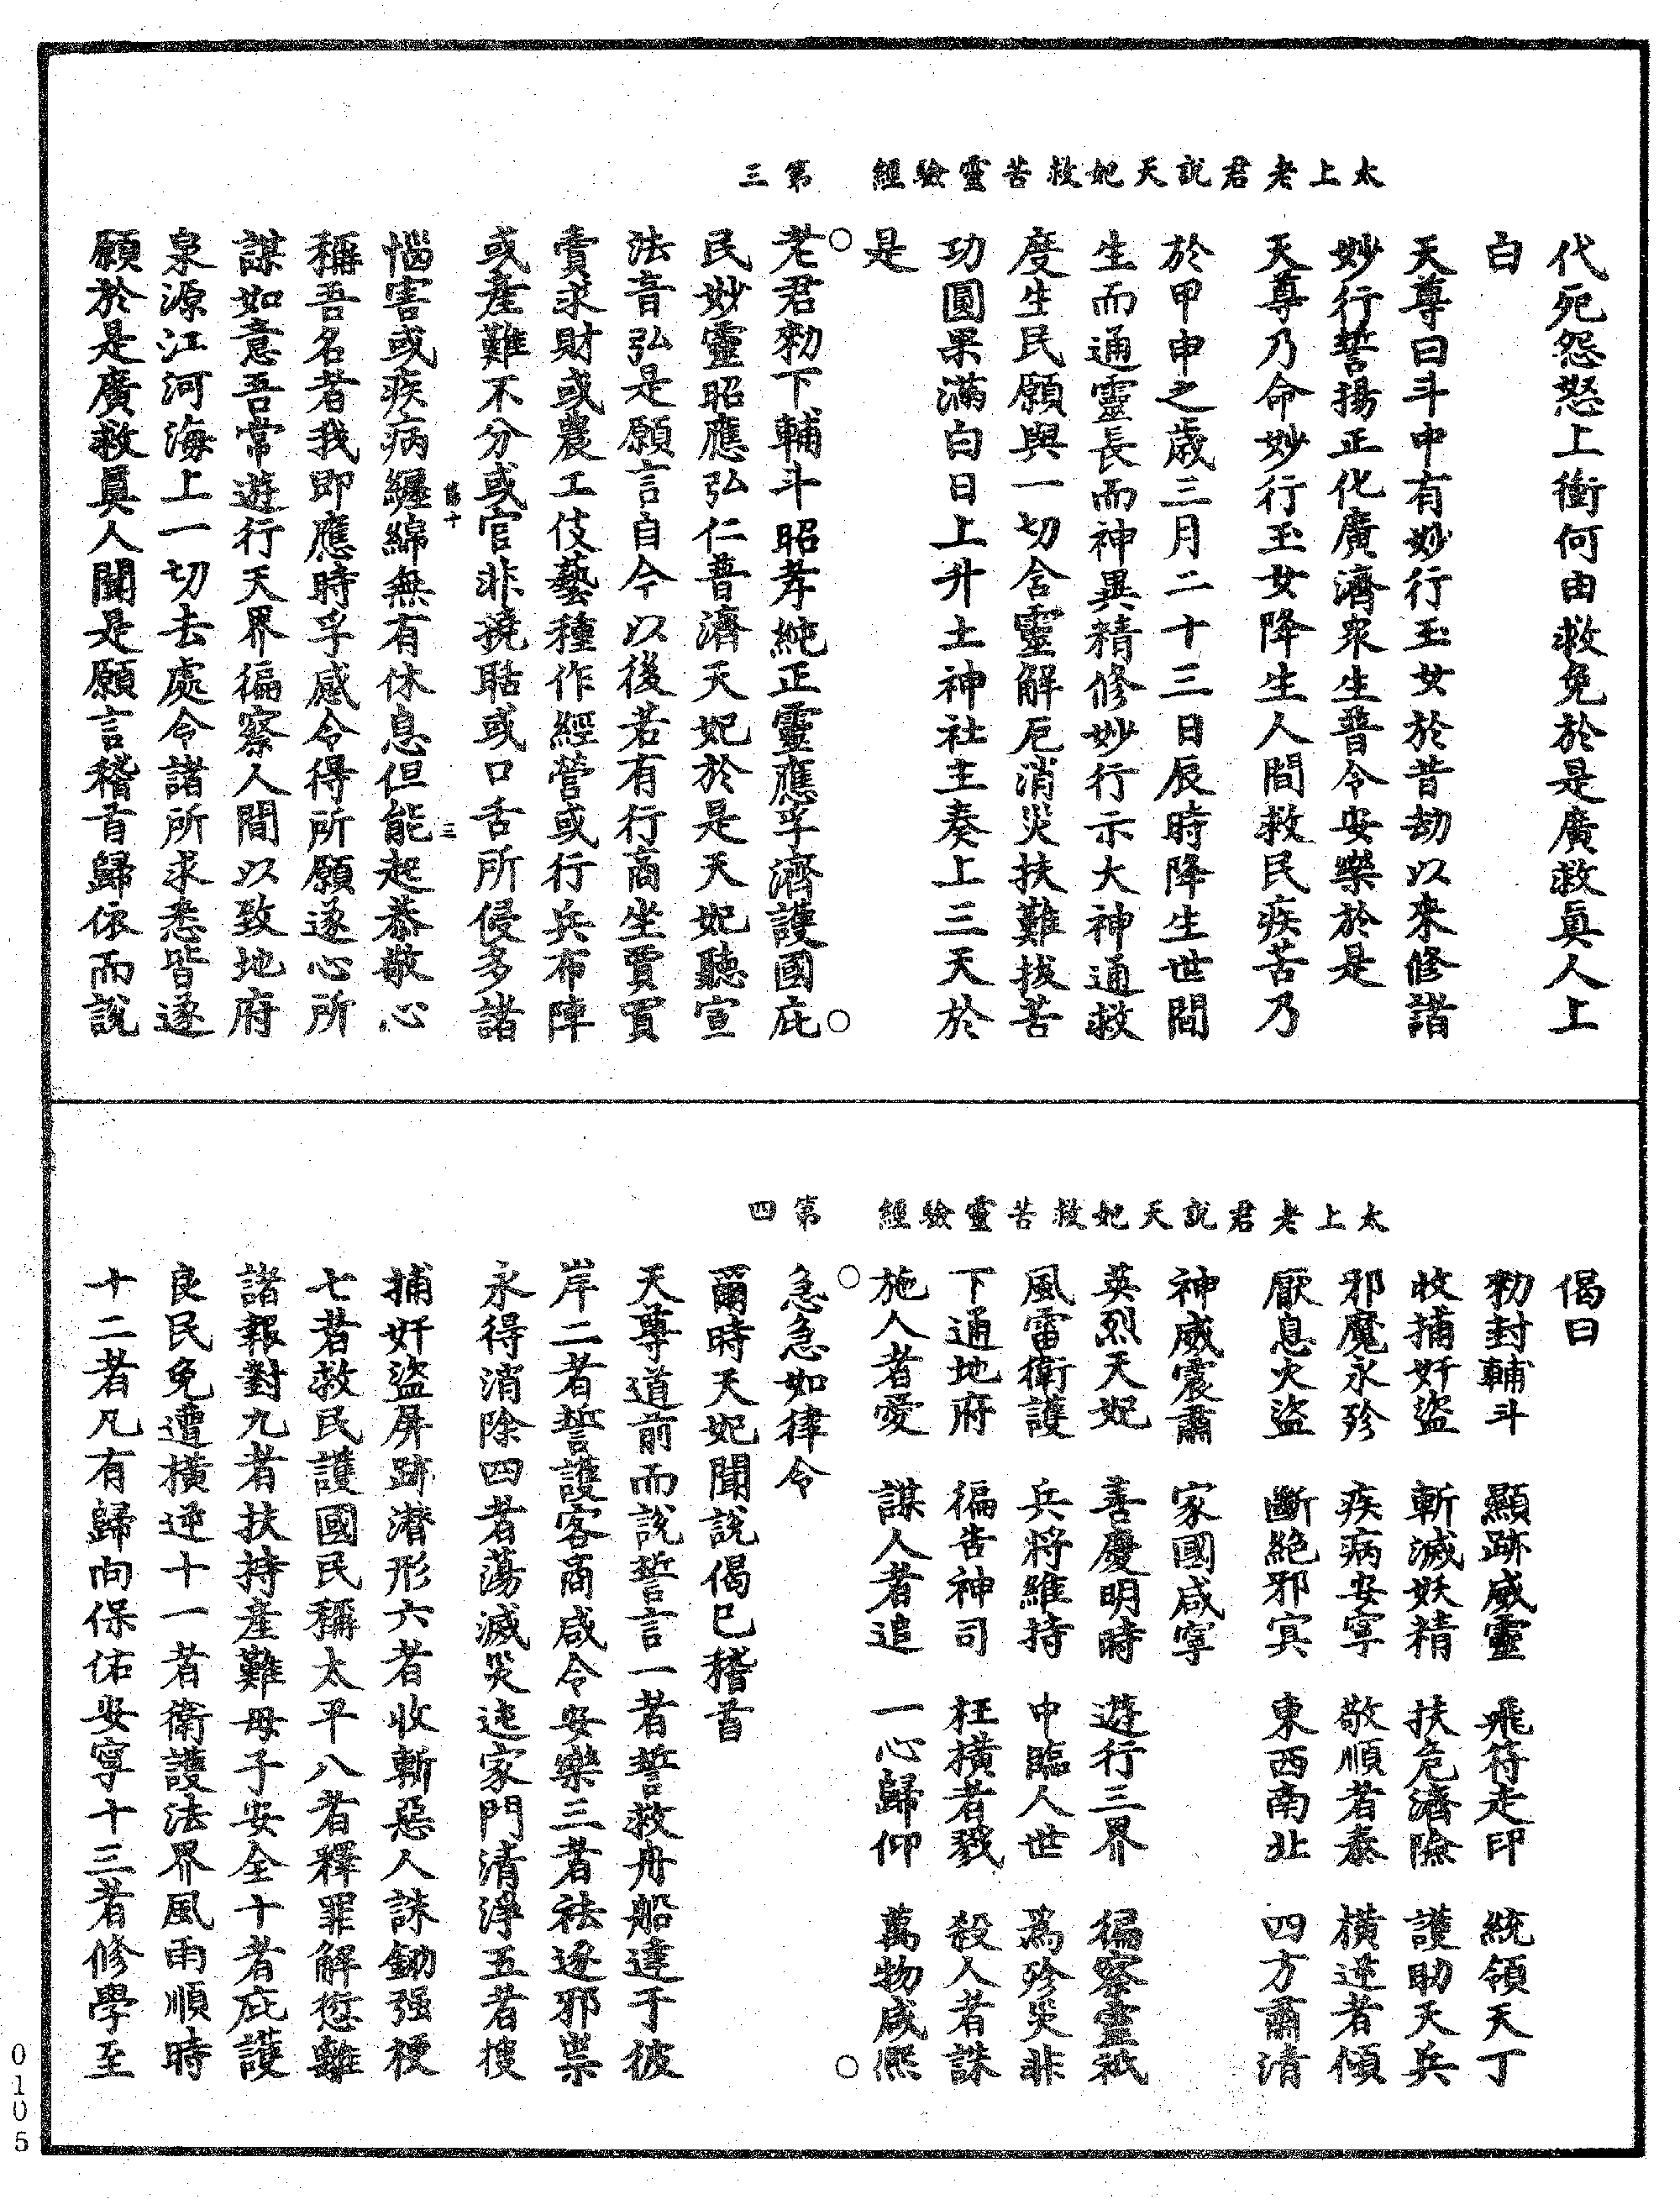 太上老君說天妃救苦靈驗經 第三
代死怨怒上衝何由救免於是廣救眞人上
白
天尊曰斗中有妙行玉女於昔劫以來修諸
妙行誓揚正化廣濟衆生普令安樂於是
天尊乃命妙行玉女降生人間救民疾苦乃
於甲申之歲三月二十三日辰時降生世間
生而通靈長而神異精修妙行示大神通救
度生民願與一切含靈解厄消災扶難拔苦
功圓果滿白日上升土神社主奏上三天於
是
○老君勑下輔斗昭孝純正靈應孚濟護國庇○
民妙靈昭應弘仁普濟天妃於是天妃聽宣
法音弘是願言自今以後若有行商坐賈買
賣求財或農工伎藝種作經營或行兵布陣
或產難不分或官非撓聒或口舌所侵多諸
惱害或疾病纏綿無有休息但能起恭敬心
稱吾名者我即應時孚感令得所願遂心所
謀如意吾常遊行天界徧察人間以致地府
泉源江河海上一切去處令諸所求悉皆遂
願於是廣救眞人聞是願言稽首歸依而說
太上老君說天妃救苦靈驗經 第四
偈曰
勑封輔斗 顯跡威靈 飛符走印 統領天丁
收捕奸盜 斬滅妖精 扶危濟險 護助天兵
邪魔永殄 疾病安寧 敬順者泰 橫逆者傾
厭息火盜 斷絕邪㝠 東西南北 四方肅清
神威震肅 家國咸寧
英烈天妃 善慶明時 遊行三界 徧察靈祇
風雷衛護 兵將維持 中臨人世 爲殄災非
下通地府 徧告神司 枉橫者戮 殺人者誅
施人者愛 謀人者追 一心歸仰 萬物咸熙
○急急如律令○
爾時天妃聞說偈已稽首
天尊道前而說誓言一者誓救舟船達于彼
岸二者誓護客商咸令安樂三者祛逐邪祟
永得消除四者蕩滅災迍家門清淨五者搜
捕奸盜屏跡潛形六者收斬惡人誅鋤强梗
七者救民護國民稱太平八者釋罪解愆離
諸報對九者扶持產難母子安全十者庇護
良民免遭橫逆十一者衛護法界風雨順時
十二者凡有歸向保佑安寧十三者修學至
0105